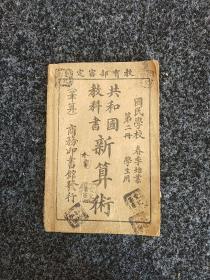 教育部審定
國民學校 春季始業
第二冊 學生用
共和國
教科書
新算術
（筆算）
商務印書館發行